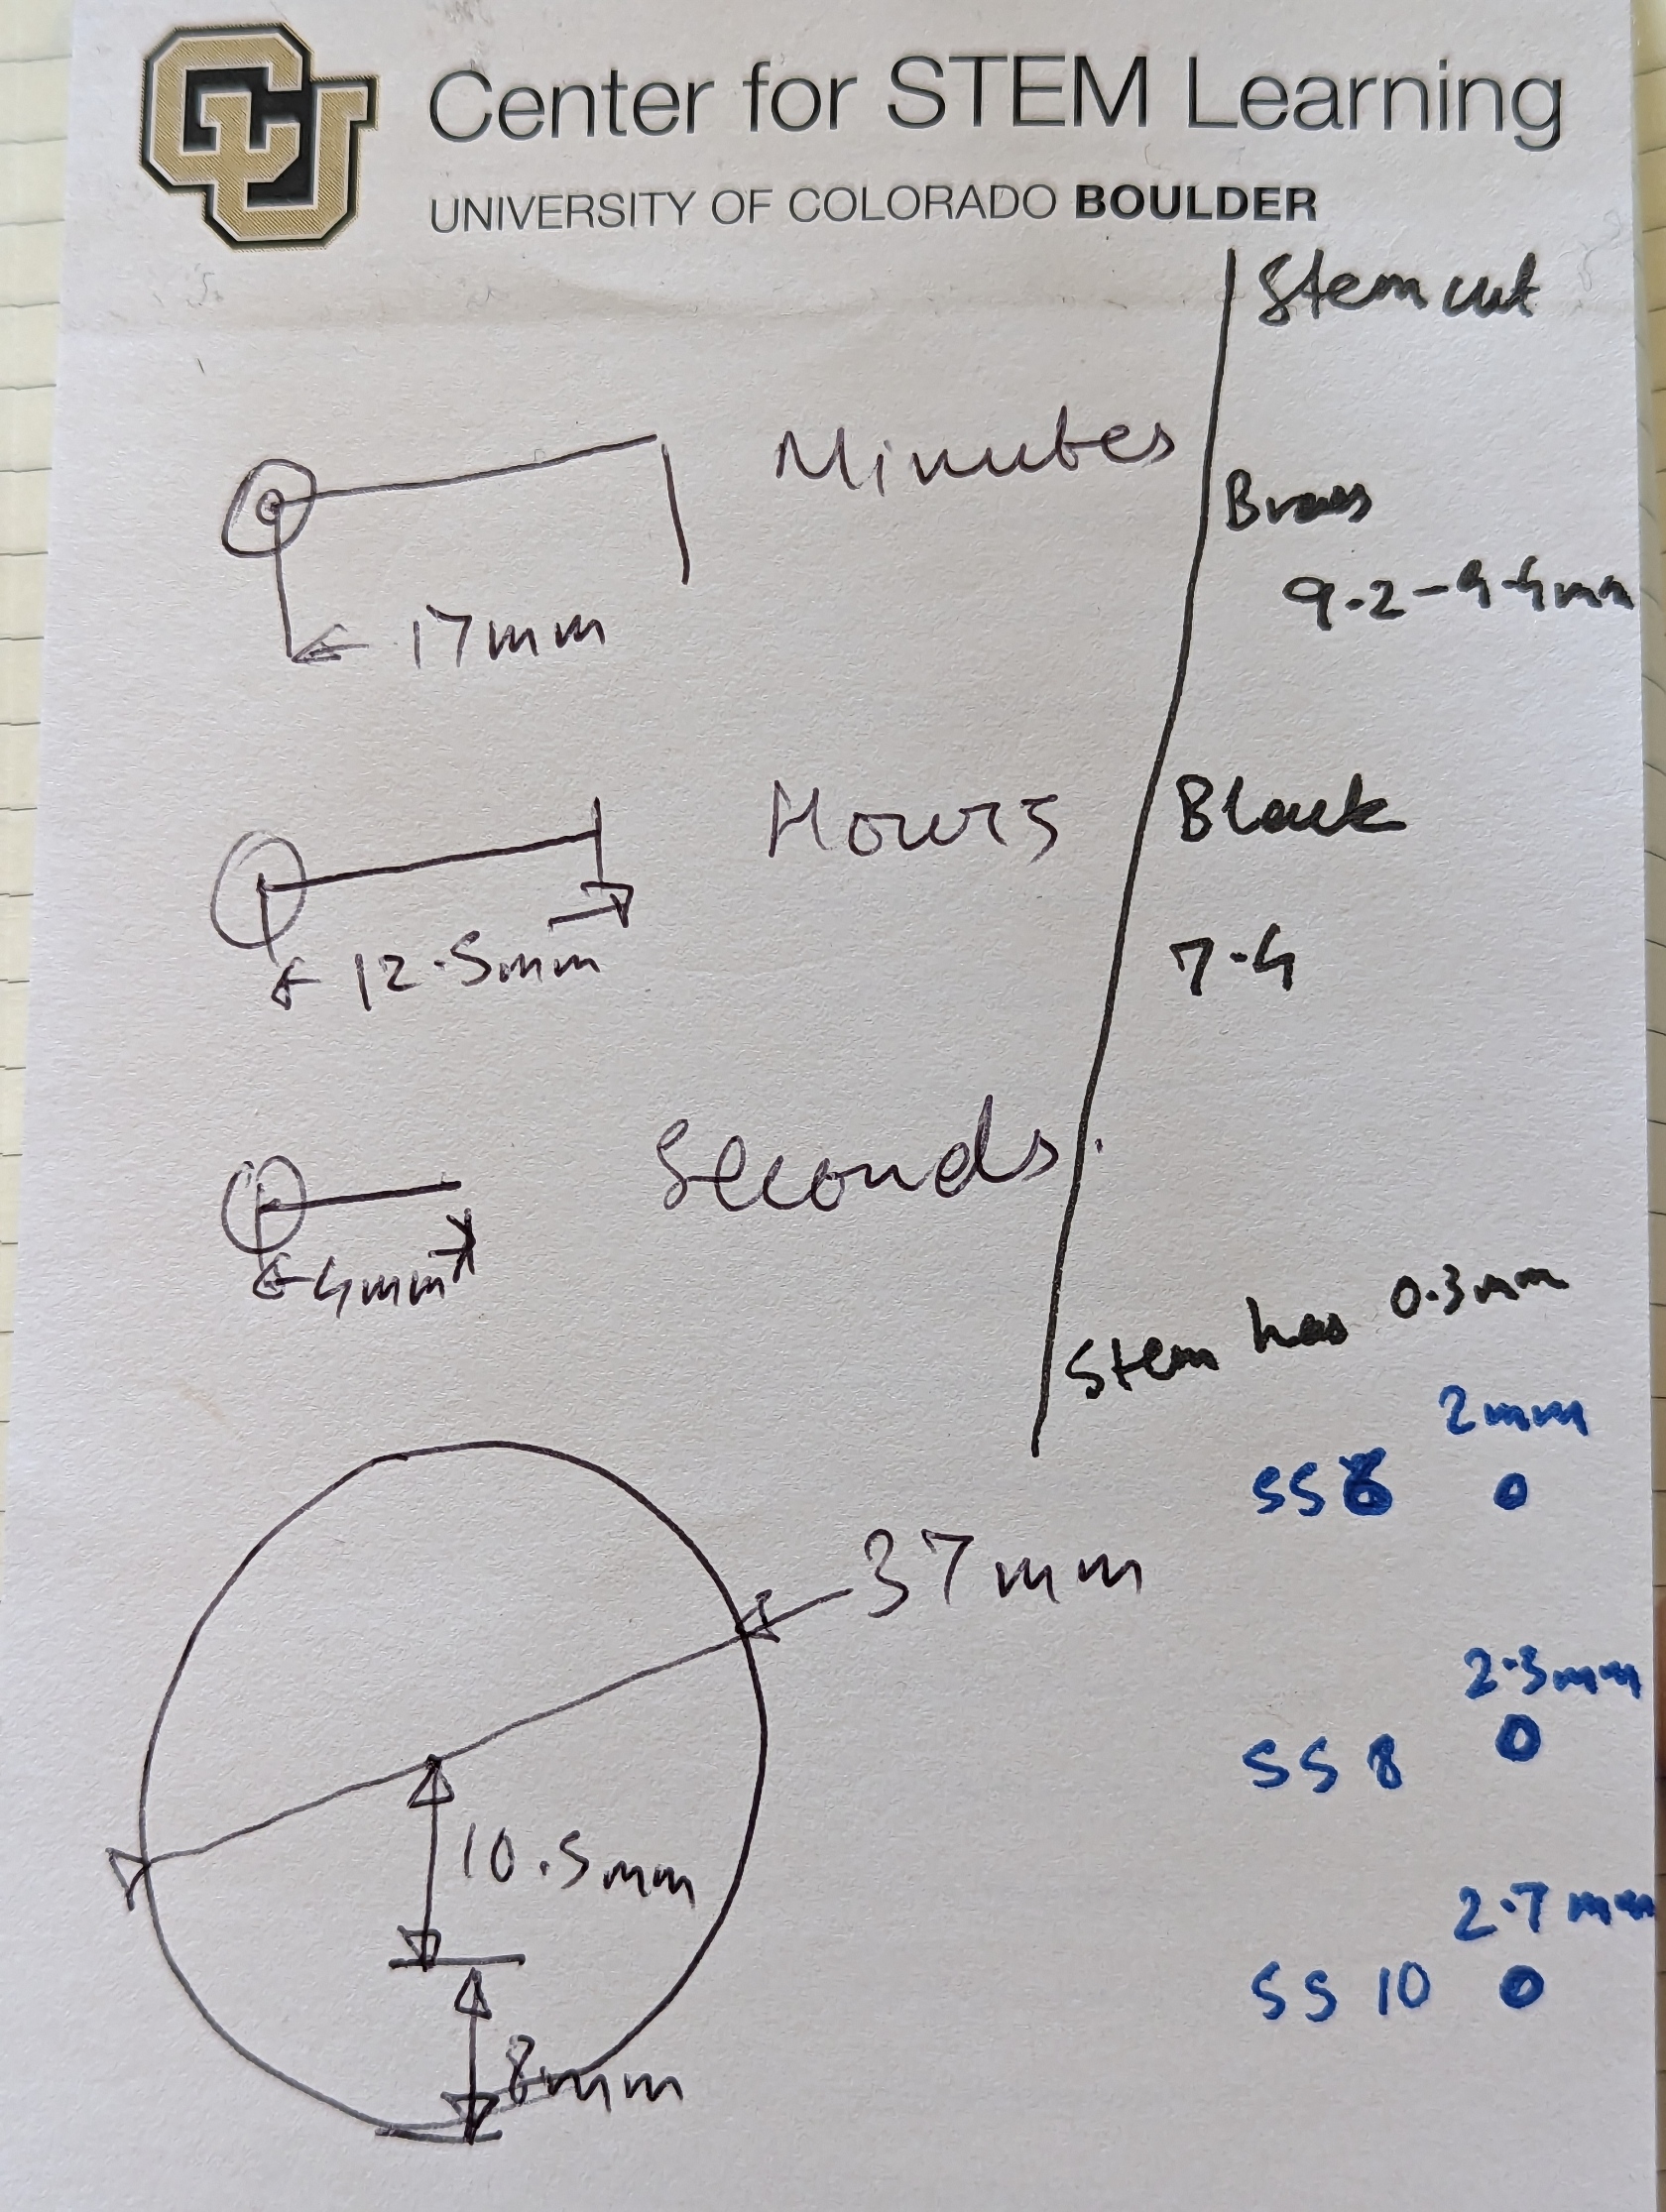 CU
Center for STEM Learning
UNIVERSITY OF COLORADO BOULDER
Stem cut
Minutes
17mm
Brass
9.2-9.4mm
Hours
12.5mm
Black
7.4
Seconds.
4mm
Stem has 0.3mm
37mm
10.5mm
8mm
2mm
SS6
2.3mm
SS 8
2.7mm
SS 10